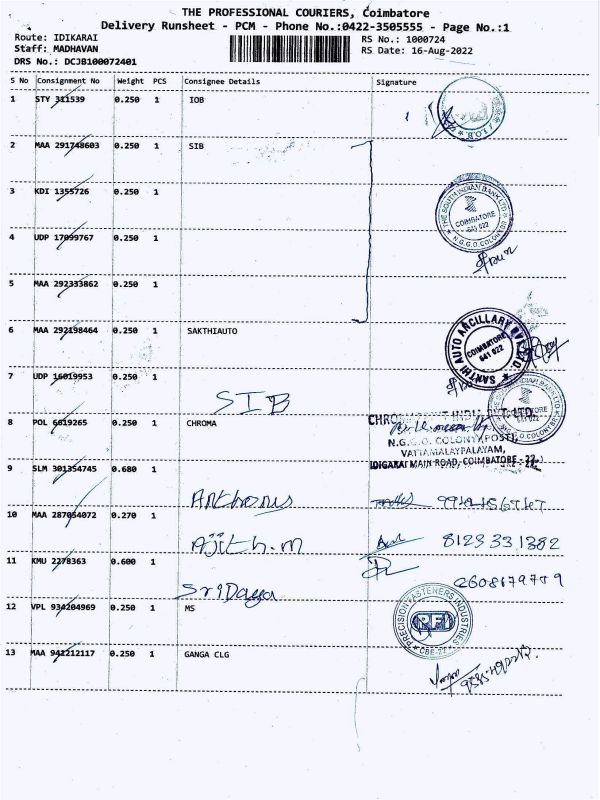 THE PROFESSIONAL COURIERS, Coimbatore
Delivery Runsheet - PCM - Phone No.:0422-3505555 - Page No.:1
Route: IDIKARAI RS No.: 1000724
Staff: MADHAVAN RS Date: 16-Aug-2022
DRS No.: DCJB100072401
S No Consignment No Weight PCS Consignee Details Signature
1 STY 311539 0.250 1 IOB
2 MAA 291748603 0.250 1 SIB
3 KDI 1355726 0.250 1
THE SOUTH INDIAN BANK LTD
COIMBATORE
641 022
N.G.G.O.COLONY
4 UDP 17099767 0.250 1
5 MAA 292333862 0.250 1
6 MAA 292198464 0.250 1 SAKTHIAUTO
SAKTHI AUTO ANCILLARY
COIMBATORE
641 022
7 UDP 16019953 0.250 1
SIB
8 POL 6619265 0.250 1 CHROMA
N.G.G.O. COLONY(POST),
VATTAMALAYPALAYAM,
IDIGARAI MAIN ROAD, COIMBATORE - 22.
9 SLM 301354745 0.680 1
10 MAA 287054072 0.270 1
Ajith.m 8123331382
11 KMU 2278363 0.600 1
SriDaya
12 VPL 934204969 0.250 1 MS
PRECISION FASTENERS INDUSTRIES
PFI
CBE-22
13 MAA 942212117 0.250 1 GANGA CLG